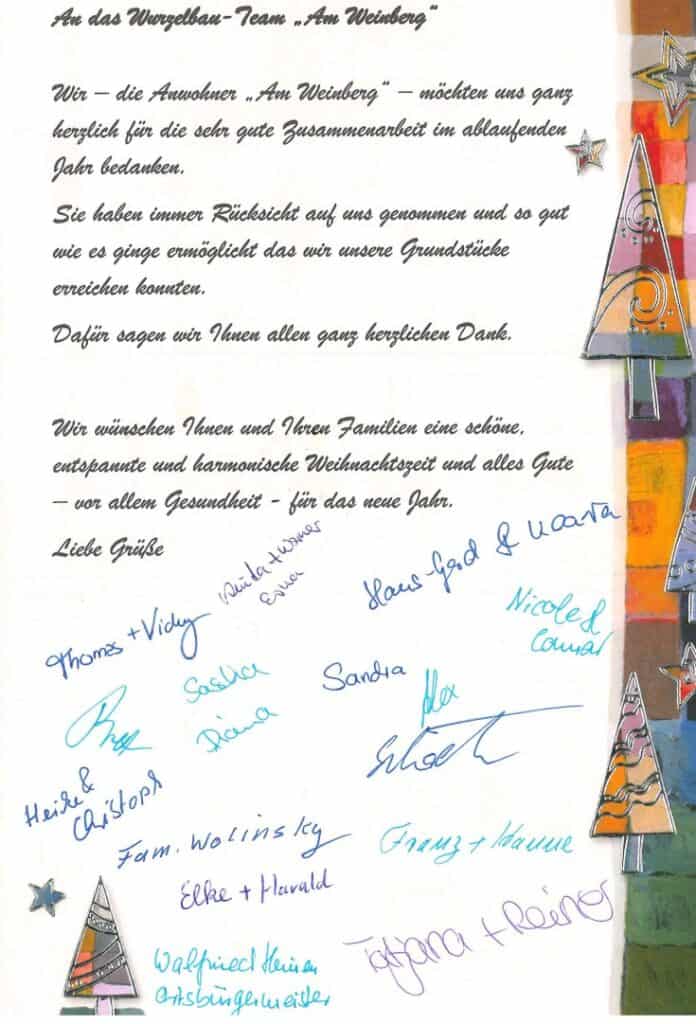 An das Wurzelbau-Team „Am Weinberg"
Wir – die Anwohner „Am Weinberg" – möchten uns ganz
herzlich für die sehr gute Zusammenarbeit im ablaufenden
Jahr bedanken.
Sie haben immer Rücksicht auf uns genommen und so gut
wie es ginge ermöglicht das wir unsere Grundstücke
erreichen konnten.
Dafür sagen wir Ihnen allen ganz herzlichen Dank.
Wir wünschen Ihnen und Ihren Familien eine schöne,
entspannte und harmonische Weihnachtszeit und alles Gute
– vor allem Gesundheit - für das neue Jahr.
Liebe Grüße
Hans-Gerd &
Thomas + Vicky
Nicole &
Sascha
Diana
Sandra
Alex
Heike &
Christoph
Fam. Wolinsky
Franz + Hanne
Elke + Harald
Tatjana + Reiner
Walfried Heinen
Ortsbürgermeister